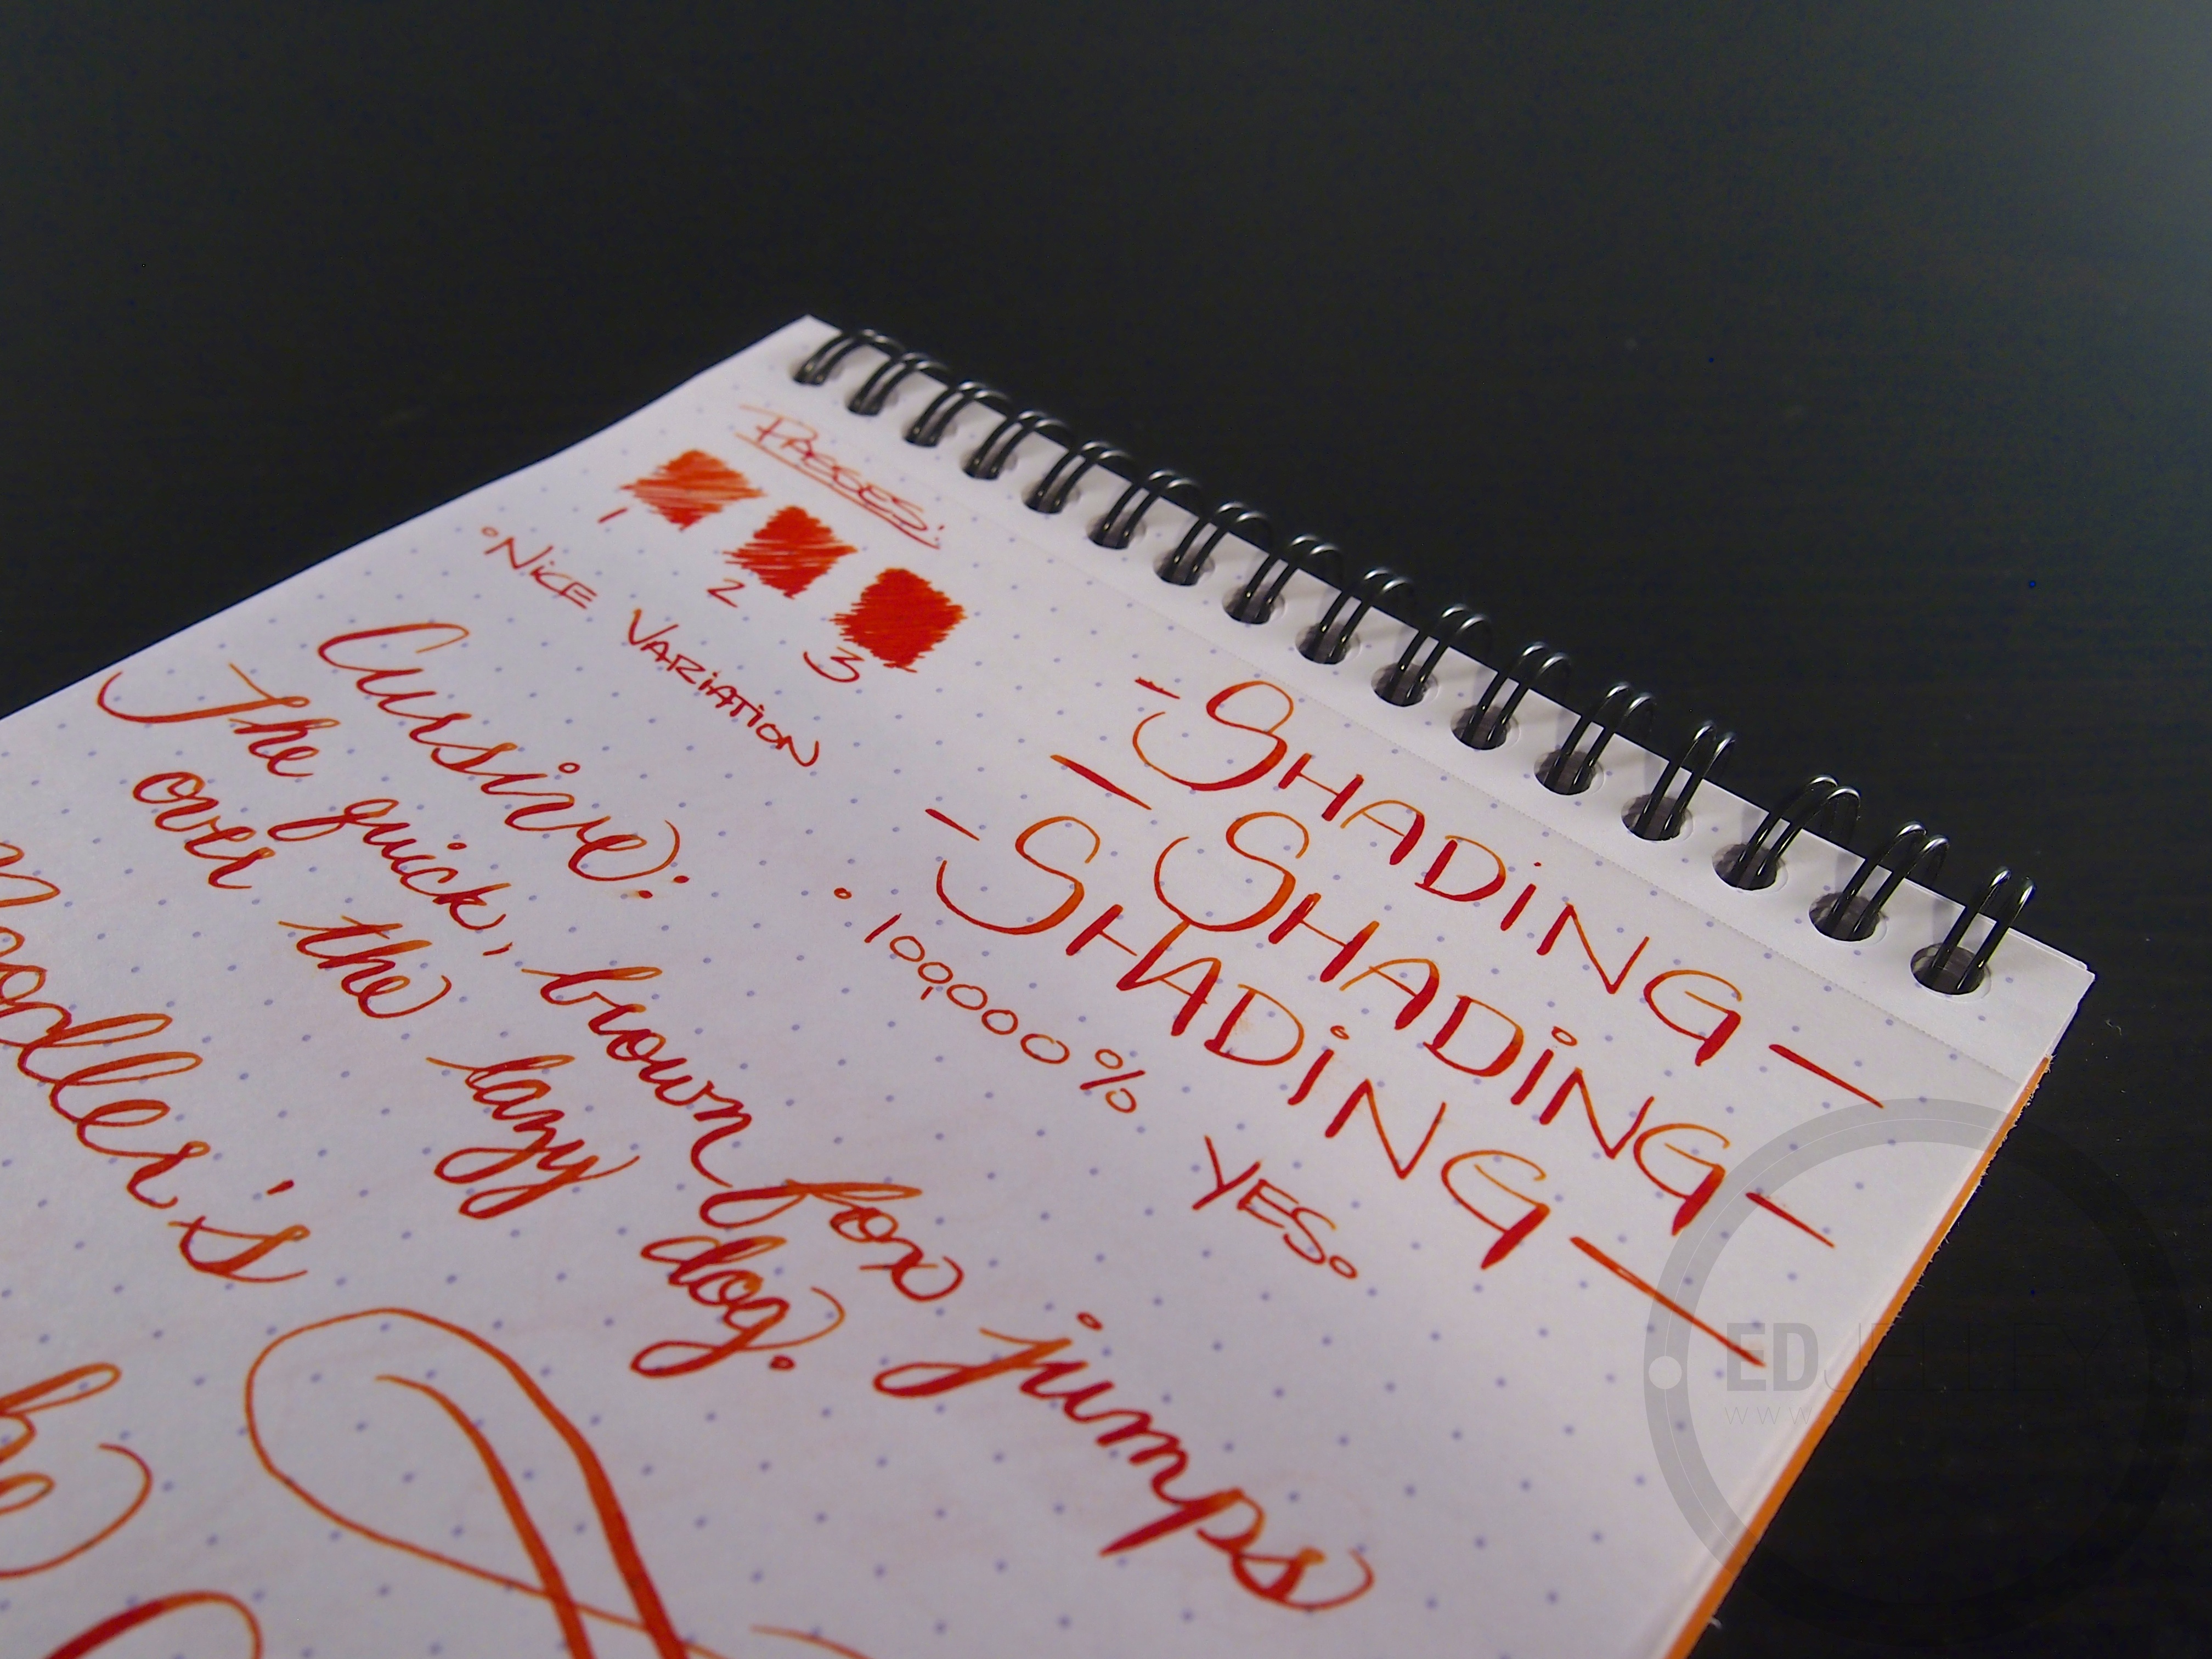 PASSES:
1 2 3
• NiCE VARiATiON
- SHADiNG -
- SHADiNG -
- SHADiNG -
• 100,000 % YES.
Cursive:
The quick, brown fox jumps
over the lazy dog.
oodler's
EDJELLEY
www